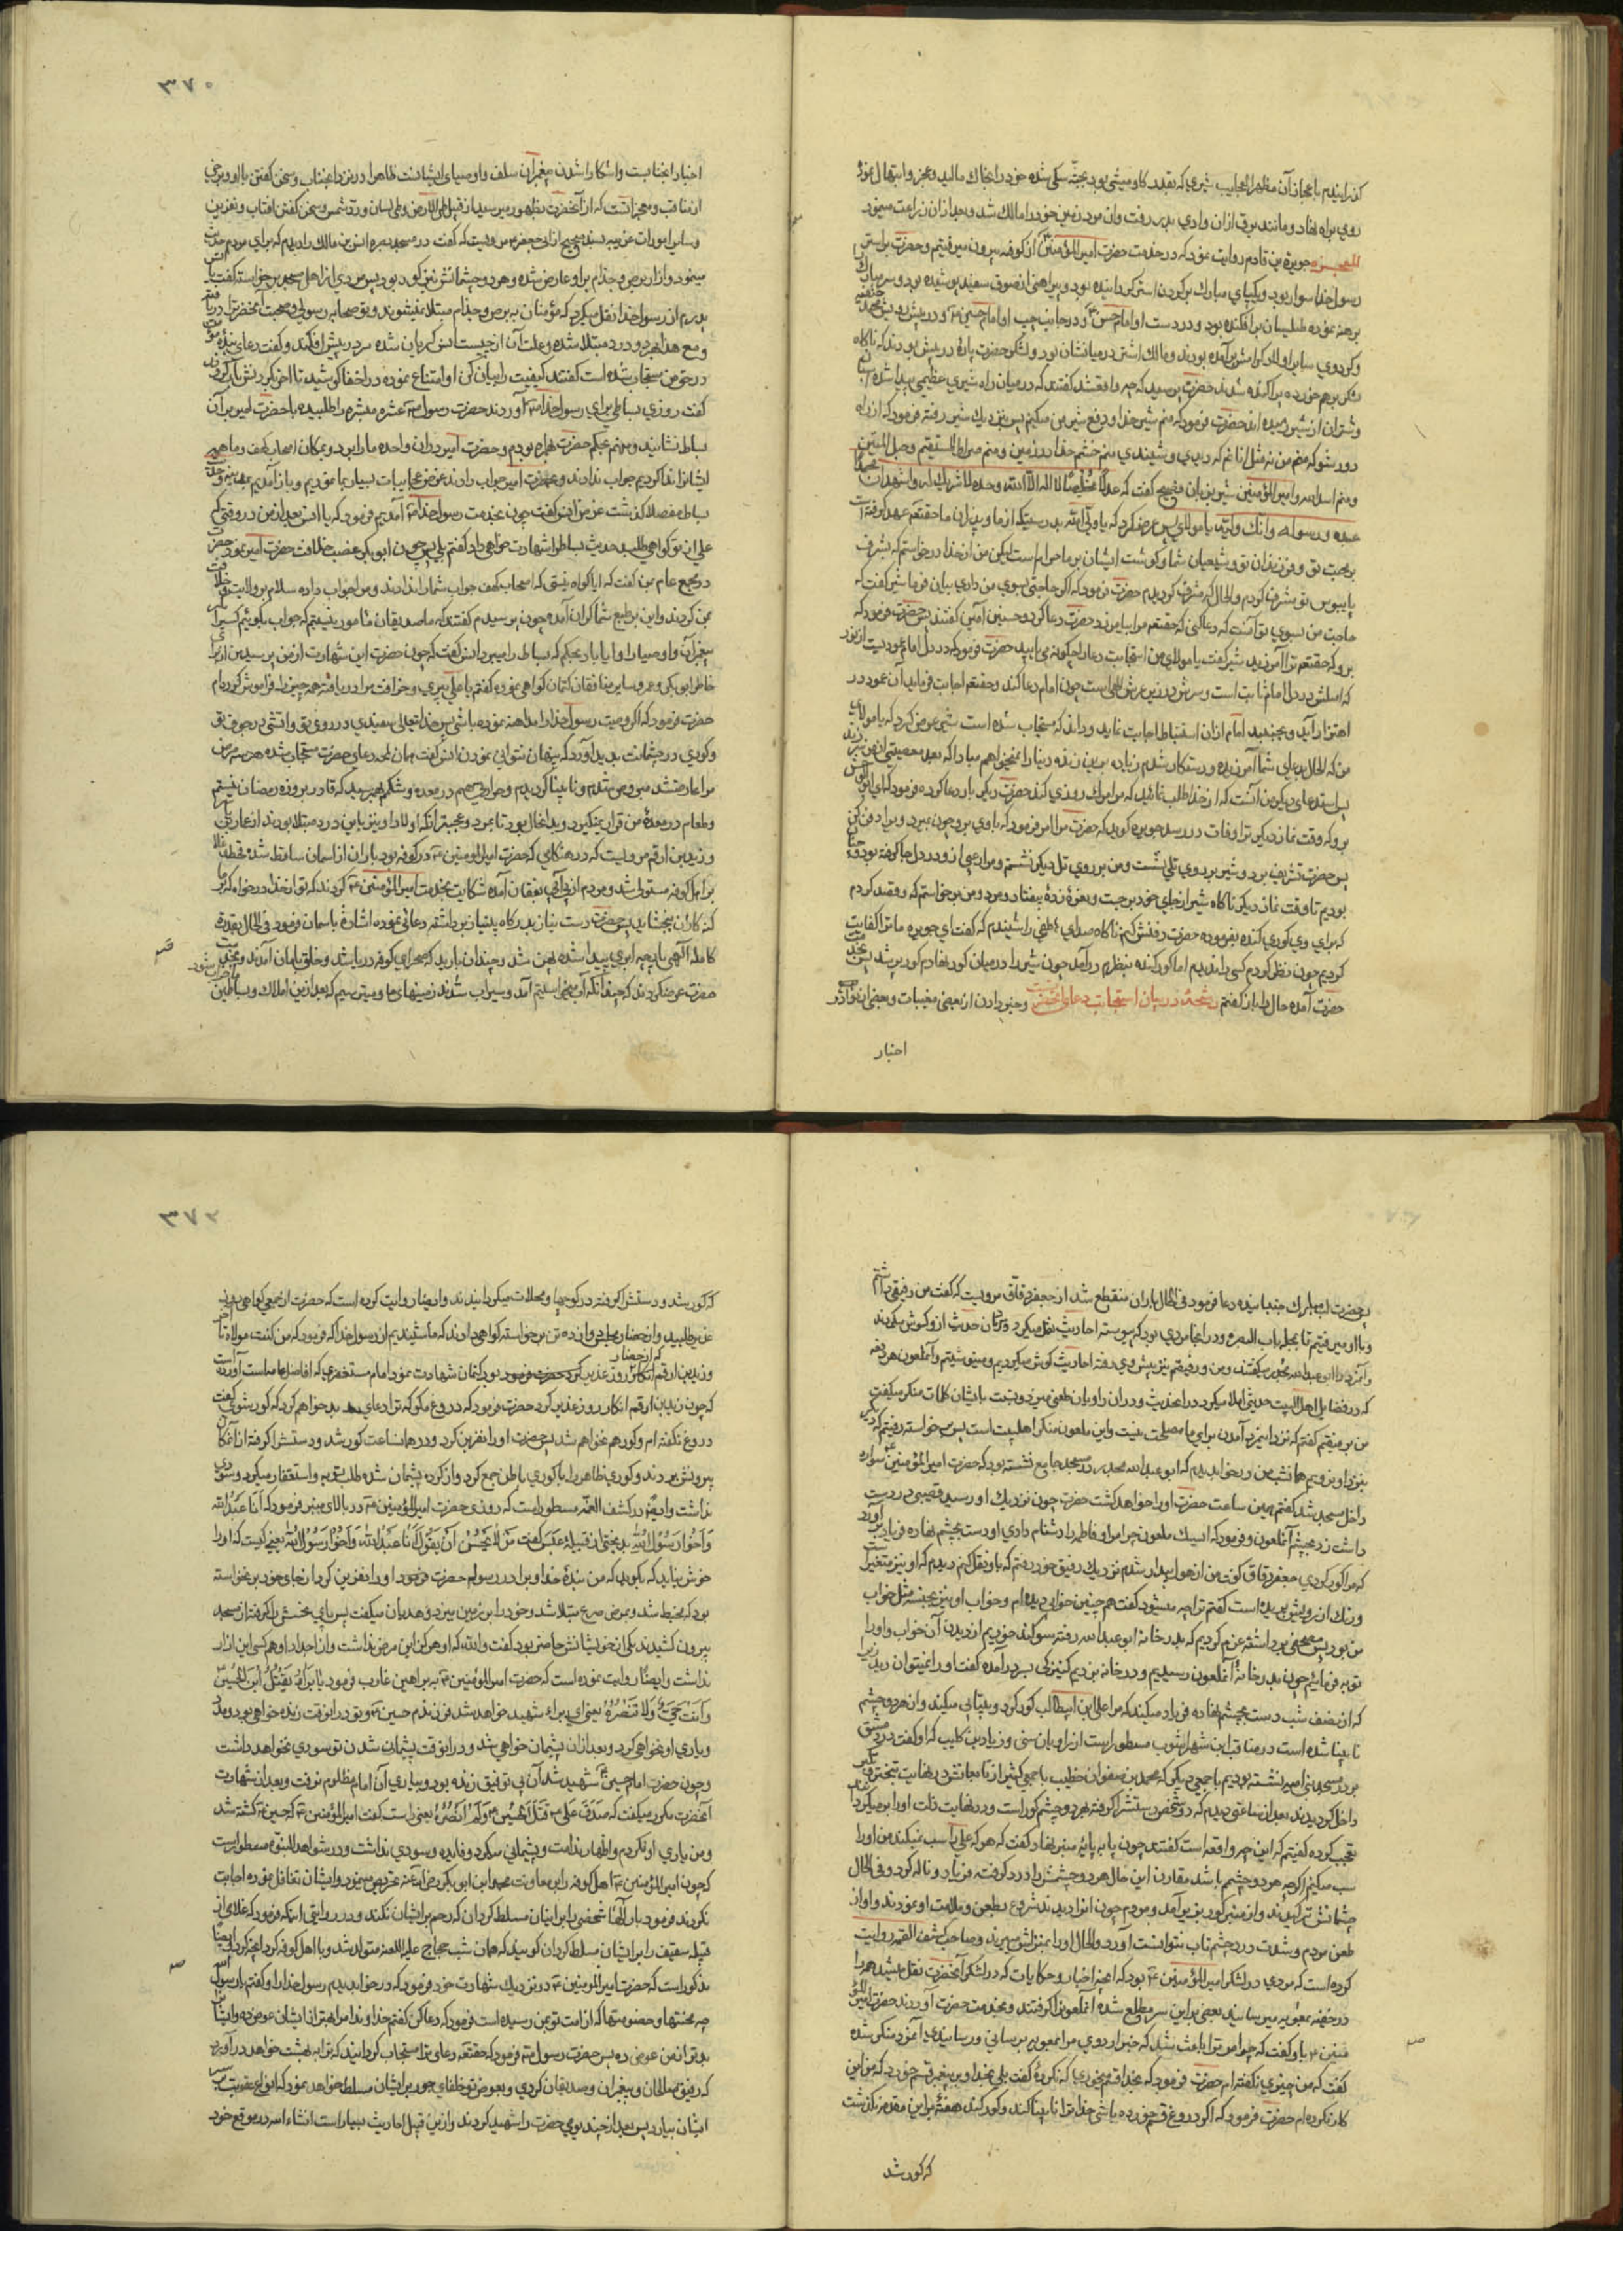 کذرانیدم باعجاز آن مظهر العجایب شیری که بقدر کاومیشی بود بجثه سکی شده خود را بخاک مالید وعجز وابتهال نموده
روی براه نهاد ومانند برق ازان وادی بدر رفت وان مرد زمین خود را مالک شد وبعد ازان زراعت مینمود
جویریة بن قادم روایت نمود که در خدمت حضرت امیرالمؤمنین از کوفه بیرون میرفتیم وحضرت بر استر
رسول خدا سوار بود ویکپای مبارک بر کردن استر کردانیده بود وپیراهنی از صوف سفید پوشیده بود وسر مبارک
برهنه نموده طیلسان برافکنده بود ودر دست او امام حسن ودر جانب چپ او امام حسین ودر پیش رویش محمد حنفیه
وکروهی سایر اولاد کرامش برآمده بودند ومالک اشتر در میانشان بود ولشکر حضرت پاره در پیش بودند که ناکاه
لشکر برهم خورده پراکنده شدند حضرت پرسید که چه واقعشد کفتند که در میان راه شیری عظیمی پیدا شده
وشتران از شیر رمیده اند حضرت فرمود که منم شیر خدا ودفع شیر من میکنم پس نزدیک شیر رفته فرمود که از راه
دور شو که منم من نه مثل انانم که دیدی وشنیدی منم خشم خدا در زمین ومنم صراط المستقیم وحبل المتین
ومنم اسد الله وامیرالمؤمنین شیر بزبان فصیح کفت که عدلا مخلصا لا اله الا الله وحده لا شریک له واشهد ان محمدا
عبده ورسوله وانک ولیه یا مولای پس عرض کرد که یا ولی الله بدرستیکه از ما وپدران ما حقتعم عهد کرفته است
بر محبت تو وفرزندان تو وشیعیان شما وکوشت ایشان بر ما حرام است لیکن من از خدا درخواستم که بشرف
پابوس تو مشرف کردم والحال که مشرف کردیدم حضرت فرمود که اکر حاجتی بسوی من داری بیان فرما شیر کفت که
حاجت من بسوی تو آنست که دعا کنی که حقتعم مرا بیامرزد حضرت دعا کرد وحسنین آمین کفتند پس حضرت فرمود که
برو که حقتعم ترا آمرزید شیر کفت یا مولای من استجابت دعا را چکونه می یابید حضرت فرمود که در دل امام عمودیست از نور
که اصلش در دل امام ثابت است وسرش در زیر عرش الهی است چون امام دعا کند وحقتعم اجابت فرماید آن عمود در
اهتزاز آید وبجنبد امام ازان استنباط اجابت نماید وداند که مستجاب شده است شیر عرض کرد که یا مولای
من که الحال بدعای شما آمرزیده ورستکار شدم زیاده برین زنده دنیا را نمیخواهم مبادا که بعد معصیتی از من سرزند
پس استدعای دیکر من آنست که از خدا طلب نمائید که مرا مرک روزی کند حضرت دیکر بار دعا کرده فرمود که ای ابو الحرث
برو که وقت نماز دیکر ترا وفات در رسد جویره کوید که حضرت مرا امر فرمود که با وی برو چون بمیرد او را دفن کن
پس حضرت تشریف برد وشیر بر روی تلی نشست ومن بر روی تل دیکر نشستم ومرا رعبی ازو در دل جا کرفته بود
بودیم تا وقت نماز دیکر ناکاه شیر از جای خود برجست ونعره زده بیفتاد ومرد ومن برخواستم که وقصد کردم
که برای وی کوری کنده بفرموده حضرت دفنش کنم ناکاه صدای هاتفی را شنیدم که کفت ای جویره ما ترا کفایت
کردیم چون نظر کردم کسی را ندیدم اما کور کنده بنظرم در آمد چون شیر را در میان کور نهادم کور پر شد پس بخدمت
حضرت آمده حال را باز کفتم رشحه در بیان استجابت دعای انحضرت وخبر دادن از بعضی مغیبات وبعضی از نوادر
اخبار
۳۷۰
اخبار انجنابست واشکارا شدن پیغمبران سلف واوصیای ایشانست ظاهرا در نزد انجناب وسخن کفتن با او وبرخی
از مناقب ومعجزاتست که از آنحضرت بظهور میرسید از قبیل طی الارض وطی لسان ورد شمس وسخن کفتن افتاب ونفرین
وسایر امورات غریبه بسند صحیح از ابی جعفر مرویست که کفت در مسجد بصره انس بن مالک را دیدم که برای مردم حدیث
مینمود وازار برص وجذام براو عارض شده وهر دو چشمانش نیز کور بود پس مردی از اهل مسجد برخواسته کفت یا انس
پدرم از رسول خدا نقل میکرد که مؤمنان به برص وجذام مبتلا نمیشوند وتو صحابه رسولی وصحبت آنحضرت را دریافته
ومع هذا بهر دو درد مبتلا شده وعلت آن از چیست انس کریان شده سر در پیش افکند وکفت دعای بنده مؤمن
در حق من مستجاب شده است کفتند کیفیت را بیان کن او امتناع نموده در اخفا کوشید تا اخر بکریه
کفت روزی بساطی برای رسول خدا آوردند حضرت رسول عشره مبشره را طلبیده با حضرت امیر بر آن
بساط نشانید ومنم بحکم حضرت همراه بودم وحضرت امیر در ان واحد ما را برد وبمکان اصحاب کهف
ایشانرا ندا کردیم جواب ندادند وحضرت امیر جواب دادند عرض عجایبات بسیار نمودیم وباز آمدیم
بساط مفصلا کذشت عرض انس کفت چون بخدمت رسول خدا آمدیم فرمود که یا انس بعد از من در وقتی که
علی از تو کواهی طلبد حدیث بساط را شهادت خواهی داد کفتم بلی پس چون ابو بکر غصب خلافت حضرت امیر نمود حضرت
در مجمع عام بمن کفت که ایا کواه نیستی که اصحاب کهف جواب شما را ندادند ومرا جواب داده سلام بر ولایت وخلافت
من کردند
پیغمبران واوصیا
خاطر ابو بکر وعمر وسایر منافقان کتمان کواهی نموده کفتم یا علی پیری وخرافت مرا دریافته همه چیز را فراموش کرده ام
حضرت فرمود که اکر وصیت رسول خدا را مداهنه نموده باشی پس خدایتعالی سفیدی در روی تو واتشی در جوف تو
وکوری در چشمانت پدید آورد که پنهان نتوانی نمودن انس کفت همان لحظه دعای حضرت مستجاب شده هر سه مرض
مرا عارض شد
وطعام در معده من قرار نمیکیرد وبدانحال بود تا بمرد وعجبتر انکه اولاد او نیز باین درد مبتلا بودند
وزید بن ارقم مرویست که در هنکامی که حضرت امیرالمومنین در کوفه بود باران از اسمان ساقط شده قحط وغلا
بر اهل کوفه مستولی شد ومردم از بی آبی بفغان آمده شکایت بخدمت امیرالمؤمنین کردند که تو از خدا درخواه که بر ما
کنه کاران ببخشاید پس حضرت دست بنیاز بدرکاه بی نیاز برداشته دعائی نموده اشاره باسمان فرمود فی الحال بقدرت
کامله الهی پارچه ابری پیدا شده پهن شد وچندان بارید که صحرای کوفه دریا شد وخلق بامان آمدند وبخدمت
حضرت عرض کردند که چندانکه آب میخواستیم آمد وسیراب شدند زمینهای ما ومیترسیم که بعد ازین املاک وبساطین
ما خراب شود
پس حضرت لب مبارک جنبانیده دعا فرمود فی الحال باران منقطع شد از جعفر دقاق مرویست که کفت من رفیقی داشتم
وبا او میرفتیم تا بمحله باب البصره ودر انجا مردی بود که پیوسته احادیث نقل میکرد ومردمان حدیث ازو کوش میکردند
وآنمرد را ابو عبدالله محدث میکفتند ومن ورفیقم نیز پیش وی رفته احادیث کوش میکردیم ومینوشتیم وآنملعون هر دفعه
که در فضایل اهل البیت حدیثی املا میکرد در انحدیث ودر ان راویان طعنی میزد ونسبت بایشان کلمات منکر میکفت
من بر رفیقم کفتم که نزد اینمرد آمدن برای ما مصلحت نیست واین ملعون منکر اهلبیت است پس برخواسته رفتیم که دیکر
بنزد او نرویم همانشب من در خواب دیدم که ابو عبدالله محدث در مسجد جامع نشسته بود که حضرت امیرالمؤمنین سواره
داخل مسجد شد کفتم همین ساعت حضرت او را خواهد کشت حضرت چون نزدیک او رسید قضیبی در دست
داشت زد بچشم آنملعون وفرمود که ای سک ملعون چرا مرا وفاطمه را دشنام دادی او دست بچشم نهاده فریاد بر آورد
که مرا کور کردی جعفر دقاق کوید من از خواب بیدار شدم نزدیک رفیق خود رفتم که باو نقل کنم دیدم که او نیز متغیر است
ورنک از رویش پریده است کفتم ترا چه میشود کفت هم چنین خوابی دیده ام وخواب او نیز بعینه مثل خواب
من بود پس مصحفی برداشته عزم کردیم که بدر خانه ابو عبدالله رفته سوکند خوریم از دیدن آن خواب واو را
توبه فرمائیم چون بدر خانه آنملعون رسیدیم ودر خانه بزدیم کنیزکی بدر آمده کفت او را نمیتوان دیدن
که از نصف شب دست بچشم نهاده فریاد میکند که مرا علی بن ابیطالب کور کرد وبیتابی میکند وان هر دو چشم
نابینا شده است در مناقب ابن شهر اشوب مسطور است از راویان سنی وزیاد بن کلیب که او کفت در دمشق
بر در مسجد بنی امیه نشسته بودیم با جمعی دیکر که محمد بن صفوان خطیب با جمعی کثیر از تابعانش در نهایت تبختر وتکبر
داخل کردیدند بعد از ساعتی دیدم که دو شخص دستش را کرفته بهر دو چشم کور است ودر نهایت ذلت او را بر میکردانند
تعجب کرده کفتیم که این چه واقعه است کفتند چون پا به پایه منبر نهاد کفت که هر که علی را سب نمیکند من او را
سب میکنم اکرچه هر دو چشم باشد مقارن این حال هر دو چشمش را درد کرفته فریاد وناله کرد وفی الحال
چشمانش ترکیدند واز منبر کور بزیر آمد ومردم چون انرا دیدند شروع بطعن وملامت او نمودند واو از
طعن مردم وشدت درد چشم تاب نتوانست آورد والحال او را بمنزلش میبرند وصاحب کشف الغمه روایت
کرده است که مردی در لشکر امیرالمؤمنین بود که آنچه اخبار وحکایات که در لشکر آنحضرت نقل میشد همه را
در خفیه بمعویه میرسانید بعضی براین سر مطلع شده آنملعونرا کرفتند وبخدمت حضرت آوردند حضرت امیر المؤ
منین باو کفت که چه امر ترا باعث شد که خبر اردوی مرا بمعویه برسانی ورسانیده آنمرد منکر شده
کفت که من چیزی نکفته ام حضرت فرمود که بخدا قسم میخوری که نکرده کفت بلی بخدا وپیغمبر قسم خورد که من این
کار نکرده ام حضرت فرمود که اکر دروغ قسم خورده باشی خدا ترا نابینا کند وکور کند هفته براین مقدمه نکذشت
که کور شد
۳۷۲
که کور شد ودستش کرفته در کوچها ومحلات میکردانیدند وایضا روایت کرده است که حضرت از جمعی کواهی روز
غدیر طلبید واز حضار مجلس دوازده تن برخواسته کواهی دادند که ما شنیدیم از رسول خدا که فرمود که من کنت مولاه تا آخر
که از حضار
وزید بن ارقم انکار روز غدیر کرد بود وکتمان شهادت نمود امام مستغفری که افاضل عامه است آورده است
که چون زید بن ارقم انکار روز غدیر کرد حضرت فرمود که دروغ مکو که ترا دعای بد خواهم کرد که کور شوی کفت
دروغ نکفته ام وکور هم نخواهم شد پس حضرت او را نفرین کرد ودر همانساعت کور شد ودستش را کرفته از انمکان
بیرونش بردند وکوری ظاهر را با کوری باطن جمع کرد واز کرده پشیمان شده طلب توبه واستغفار میکرد وسودی
نداشت وایضا در کشف الغمه مسطور است که روزی حضرت امیرالمؤمنین در بالای منبر فرمود که انا عبد الله
واخو رسول الله بدبختی از قبیله عبس کفت من لا یحسن ان یقول انا عبد الله واخو رسول الله یعنی کیست که او را
خوش نیاید که بکوید که من بنده خدا وبرادر رسولم حضرت فرمود او را نفرین کرد از جای خود برنخواسته
بود که مخبط شد وبمرض صرع مبتلا شد وخود را بر زمین میزد وهذیان میکفت پس پای نحسش را کرفته از مسجد
بیرون کشیدند یکی از خویشانش حاضر بود کفت والله که او هرکز این مرض نداشت واز اجداد او هم کسی این ازار
نداشت وایضا روایت نموده است که حضرت امیرالمؤمنین به براء بن عازب فرمود یا براء یقتل ابنی الحسین
وانت حی ولا تنصره یعنی ای براء شهید خواهد شد فرزندم حسین وتو در انوقت زنده خواهی بود ومدد
ویاری او نخواهی کرد وبعد ازان پشیمان خواهی شد ودر انوقت پشیمانی شدن تو سودی نخواهد داشت
وچون حضرت امام حسین شهید شد آن بی توفیق زنده بود وبیاری آن امام مظلوم نرفت وبعد از شهادت
آنحضرت مکرر میکفت که صدق علی قتل الحسین ولم انصره یعنی راست کفت امیرالمؤمنین که حسین کشته شد
ومن یاری او نکردم واظهار ندامت وپشیمانی میکرد وفایده وسودی نداشت ودر شواهد النبوه مسطور است
که چون امیرالمؤمنین اهل کوفه را بمعاونت محمد ابن ابو بکر تحریص مینمود وایشان تغافل نموده اجابت
نکردند فرمود بار الها شخصی را بر اینان مسلط کردان که رحم بر ایشان نکند ودر روایتی انکه فرمود که غلامی از
قبیله ثقیف را بر ایشان مسلط کردان کویند که همان شب حجاج علیه اللعنه متولد شد وبا اهل کوفه کرد انچه کرد وایضا
مذکور است که حضرت امیرالمؤمنین در نزدیک شهادت خود فرمود که در خواب دیدم رسول خدا را وکفتم یا رسول الله
چه محنتها وخصومتها که از امت تو بمن رسیده است فرمود که دعا کن کفتم خداوندا مرا بهتر از ایشان عوض ده وایشانرا
بدتر از من عوض ده پس حضرت رسول فرمود که حقتعم دعای ترا مستجاب کردانید که ترا به بهشت خواهد در آورد
که رفیق صالحان وپیغمبران وصدیقان کردی وبعوض تو خلفای جور بر ایشان مسلط خواهد نمود که انواع عقوبت بسر
ایشان بیارد پس بعد از چند یومی حضرت را شهید کردند وازین قبیل احادیث بسیار است انشاء الله در موقع خود